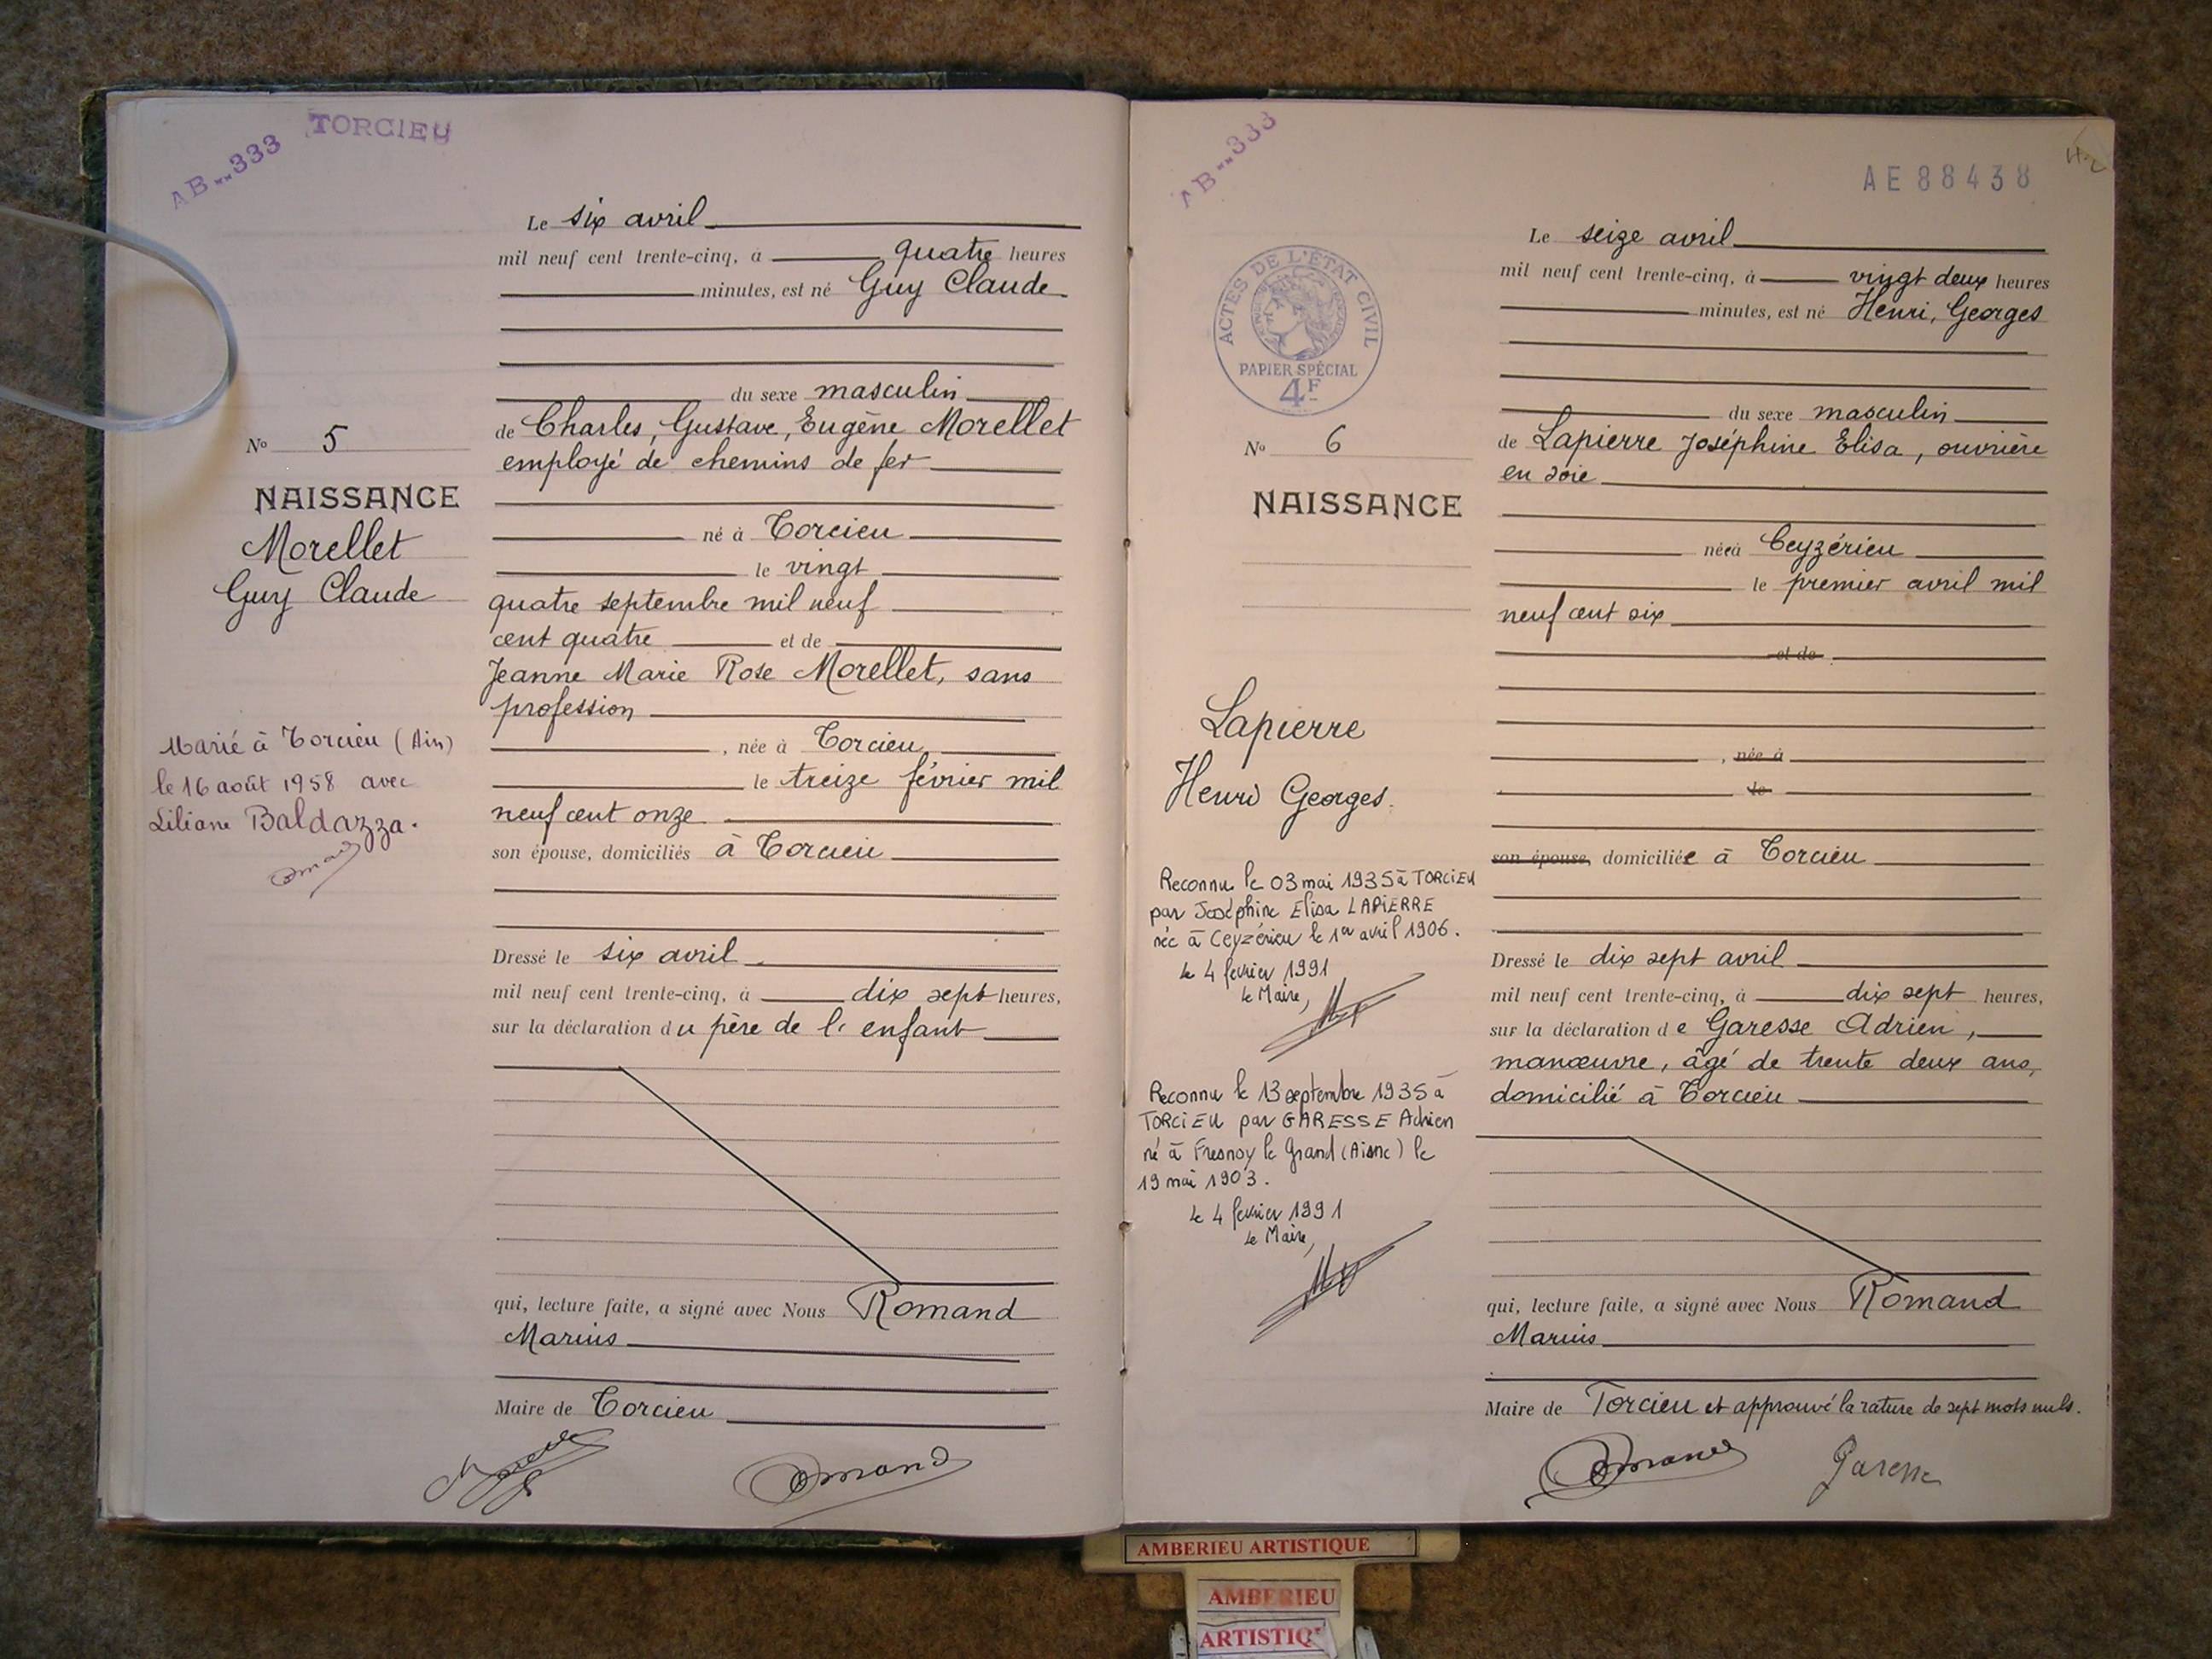 TORCIEU
AB-333
Le six avril
mil neuf cent trente-cinq, à quatre heures
minutes, est né Guy Claude
du sexe masculin
de Charles, Gustave, Eugène Morellet
employé de chemins de fer
né à Torcieu
le vingt
quatre septembre mil neuf
cent quatre et de
Jeanne Marie Rose Morellet, sans
profession
, née à Torcieu
le treize février mil
neuf cent onze
son épouse, domiciliés à Torcieu
Dressé le six avril
mil neuf cent trente-cinq, à dix sept heures,
sur la déclaration du père de l'enfant
qui, lecture faite, a signé avec Nous Romand
Marius
Maire de Torcieu
Romand
No 5
NAISSANCE
Morellet
Guy Claude
Marié à Torcieu (Ain)
le 16 août 1958 avec
Liliane Baldazza.
AB-333
AE88438
ACTES DE L'ÉTAT CIVIL
PAPIER SPÉCIAL
4F
No 6
NAISSANCE
Lapierre
Henri Georges.
Reconnu le 03 mai 1935 à TORCIEU
par Joséphine Elisa LAPIERRE
née à Ceyzérieu le 1er avril 1906.
le 4 fevrier 1991
le Maire,
Reconnu le 13 septembre 1935 à
TORCIEU par GARESSE Adrien
né à Fresnoy le Grand (Aisne) le
19 mai 1903.
le 4 fevrier 1991
le Maire,
Le seize avril
mil neuf cent trente-cinq, à vingt deux heures
minutes, est né Henri, Georges
du sexe masculin
de Lapierre Joséphine Elisa, ouvrière
en soie
née à Ceyzérieu
le premier avril mil
neuf cent six
et de
, née à
le
son épouse, domiciliée à Torcieu
Dressé le dix sept avril
mil neuf cent trente-cinq, à dix sept heures,
sur la déclaration de Garesse Adrien,
manœuvre, âgé de trente deux ans,
domicilié à Torcieu
qui, lecture faite, a signé avec Nous Romand
Marius
Maire de Torcieu et approuvé la rature de sept mots nuls.
Romand Garesse
AMBERIEU ARTISTIQUE
AMBERIEU
ARTISTIQ